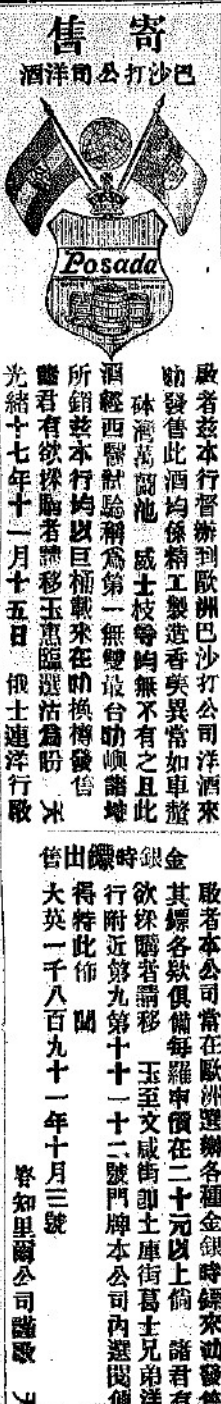 寄售
巴沙打公司洋酒
Posada
啟者茲本行督辦到歐洲巴沙打公司洋酒來
叻發售此酒均係精工製造香美異常如車厘
砵灣萬蘭池 威士枝等均無不有之且此
酒經西醫試驗稱為第一無雙最合叻嶼諸埠
所銷茲本行均以巨桶載來在叻換樽發售
諸君有欲採購者請移玉惠臨選沽為盼 天
光緒十七年十一月十五日 俄士連洋行啟
金銀時鏢出售
啟者本公司常在歐洲選辦各種金銀時鏢來叻發
其鏢各欵俱備每羅申價在二十元以上倘 諸君有
欲採購者請移 玉至文咸街卽土庫街葛士兄弟洋
行附近第九第十十一十二號門牌本公司內選閱
得特此佈 聞
大英一千八百九十一年十月三號
知里爾公司謹啟 天